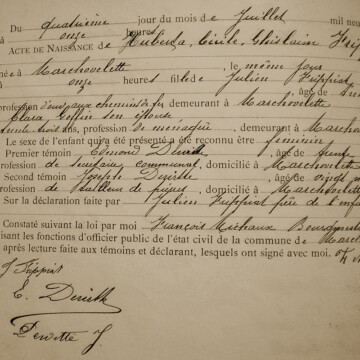 Du quatrième jour du mois de Juillet mil neuf
onze heures
ACTE DE NAISSANCE de Hubina, Cécile, Ghislaine
née à Marchovelette, le même jour
à onze heures fille de Julien Frippiat
, âgé de
profession d'ouv. aux chemins de fer demeurant à Marchovelette
Clara son épouse
trois ans, profession de ménagère, demeurant à Marchov
Le sexe de l'enfant qui a été présenté a été reconnu être féminin
Premier témoin Edmond , âgé de trente
profession de communal, domicilié à Marchovelette
Second témoin Joseph , âgé de vingt
profession de tailleur de pierres, domicilié à Marchovelette
Sur la déclaration faite par Julien Frippiat père de l'enf
Constaté suivant la loi par moi François Michaux Bourgmestre
isant les fonctions d'officier public de l'état civil de la commune de March
après lecture faite aux témoins et déclarant, lesquels ont signé avec moi.
J Frippiat
E.
J.